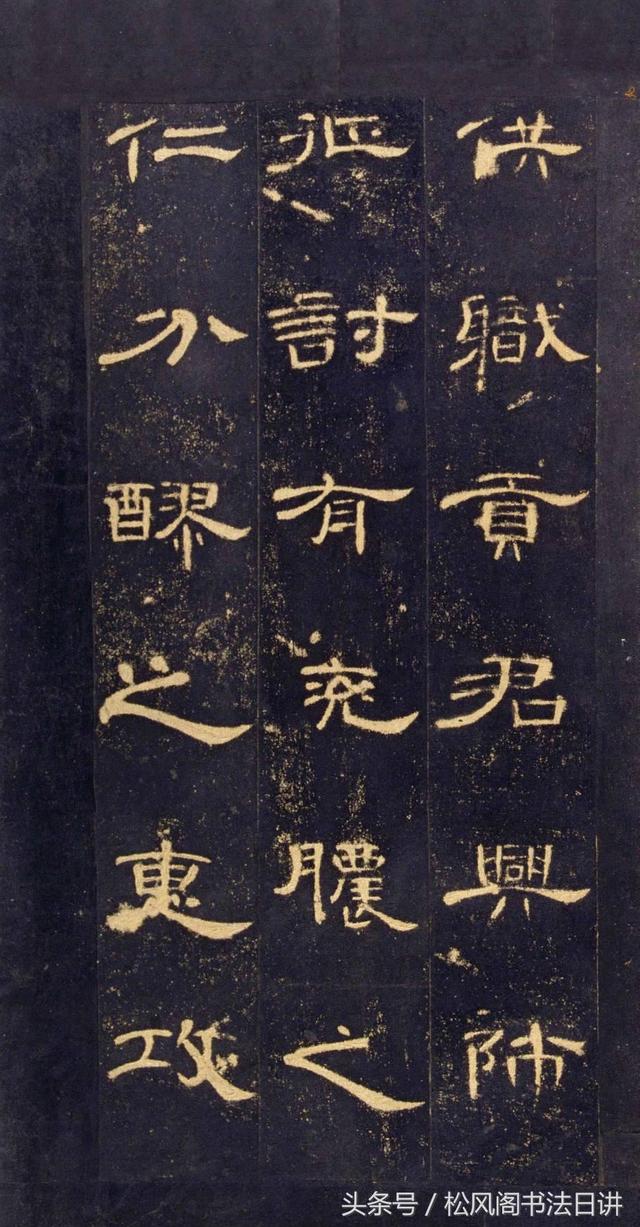 供職貢君興師
征討有兗膿之
仁分醪之惠攻
头条号 / 松风阁书法日讲